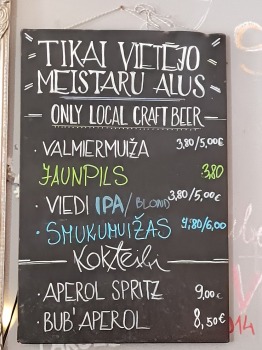 TIKAI VIETĒJO
MEISTARU ALUS
ONLY LOCAL CRAFT BEER
· VALMIERMUIŽA 3,80/5,00€
JAUNPILS 3,80
· VIEDI IPA/BLOND 3,80/5,00€
· SMUKUMUIŽAS 4,80/6,00
Kokteiļi
· APEROL SPRITZ 9,00€
· BUB'APEROL 8,50€